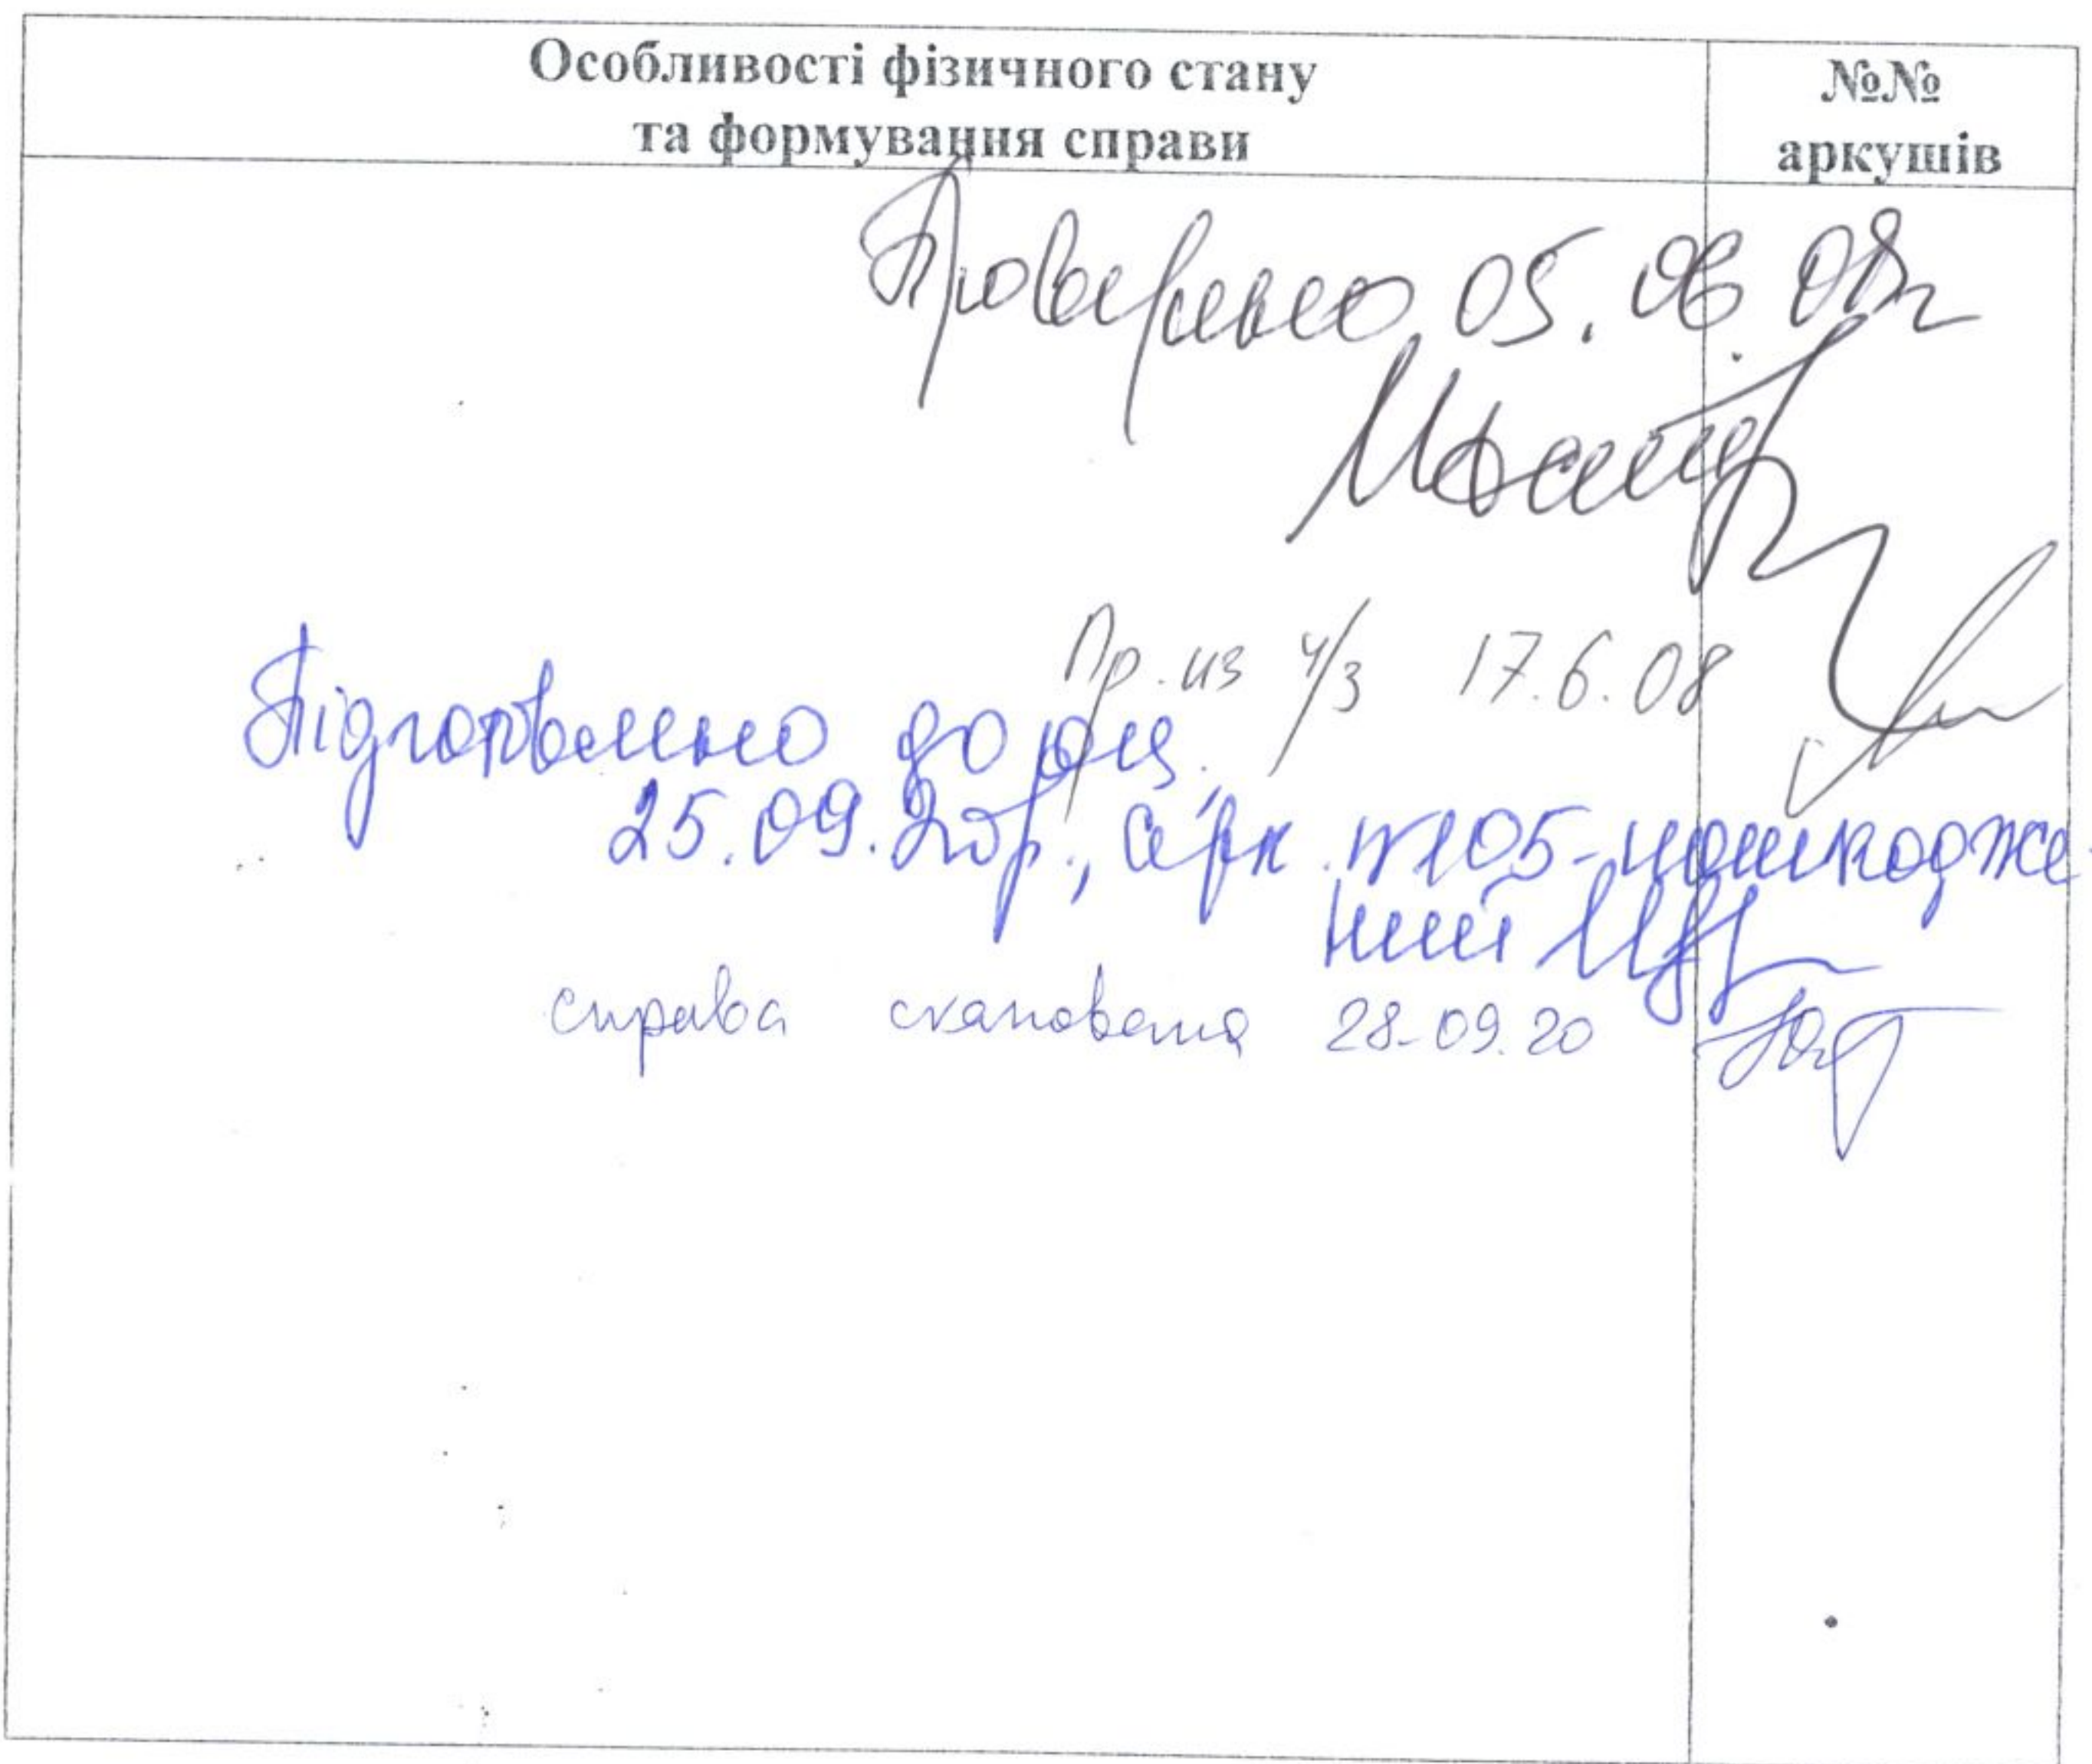 Особливості фізичного стану
та формування справи
№№
аркушів
Проверено 05.06.08г
Пр. из ч/з 17.6.08
Підготовлено до оц.
25.09.20р., арк. №105-пошкодже
ний
справа сканована 28.09.20